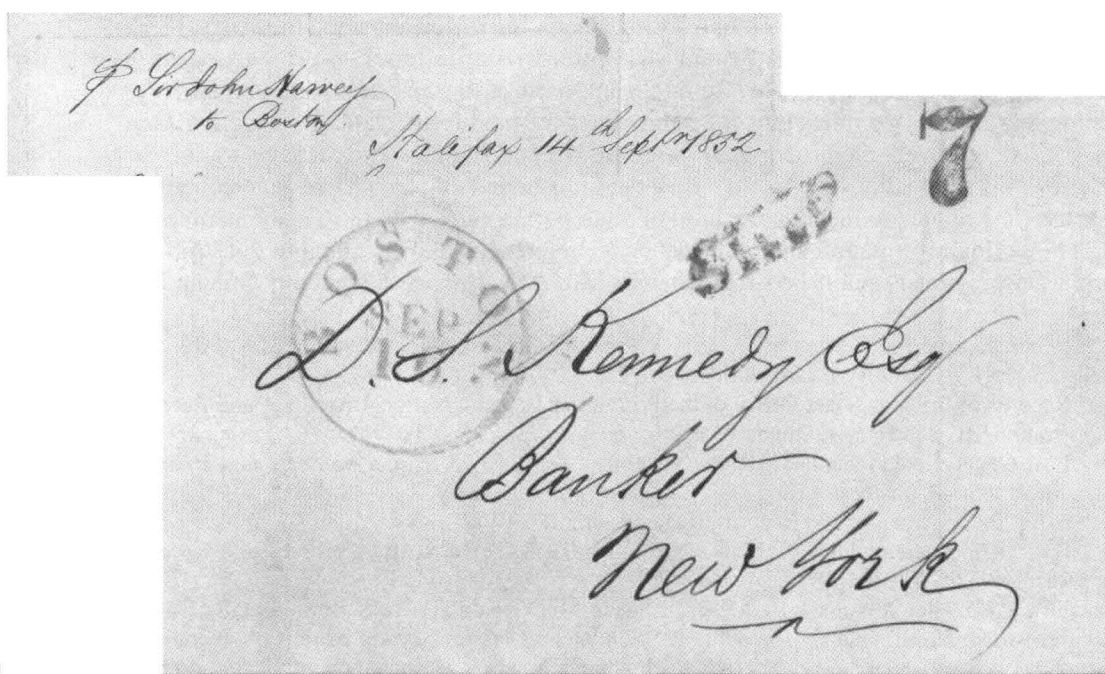 ⅌ Sir John Harvey
to Boston
Halifax 14th Septr 1852
7
BOSTON
SEP
D. S. Kennedy Esq
Banker
New York